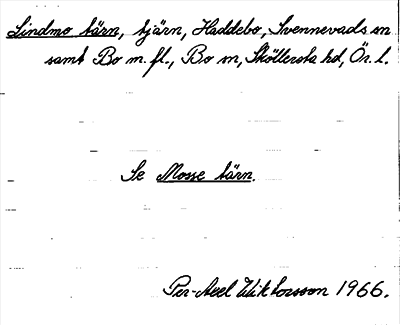 Lindmo tärn, tjärn, Haddebo, Svennevads sn
samt Bo m. fl., Bo sn, Sköllersta hd, Ör. l.
Se Mosse tärn.
Per-Axel Wiktorsson 1966.